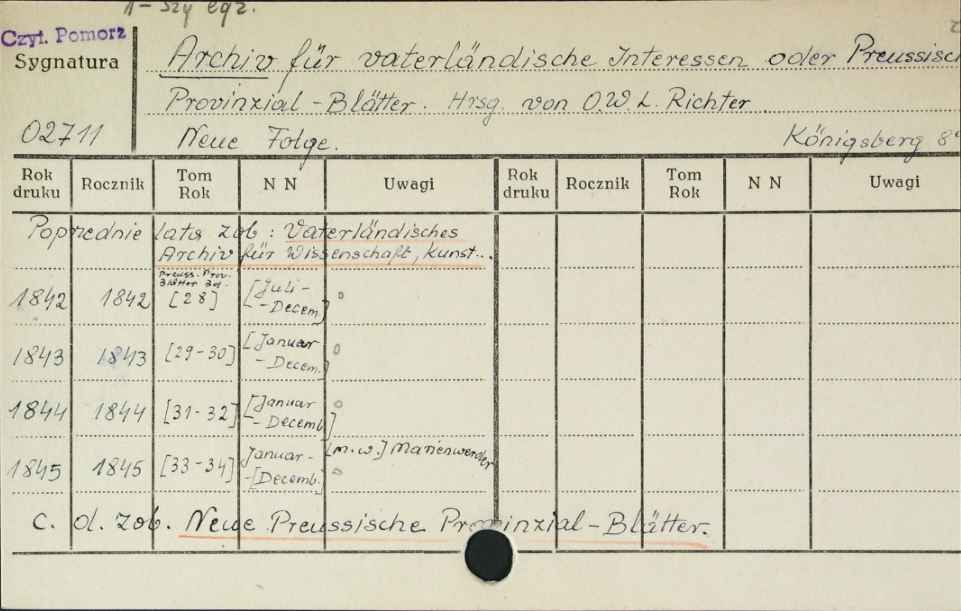 1-szy egz.
Czyt. Pomorz
Sygnatura
Archiv für vaterländische Interessen oder Preussisch
Provinzial-Blätter. Hrsg. von O.W.L. Richter
02711 Neue Folge. Königsberg 8°
Rok druku Rocznik Tom Rok N N Uwagi Rok druku Rocznik Tom Rok N N Uwagi
Poprzednie lata zob: Vaterländisches
Archiv für Wissenschaft, Kunst...
Preuss. Prov.
Blätter Bd.
1842 1842 [28] [Juli-
-Decem.]
1843 1843 [29-30] [Januar
-Decem.]
1844 1844 [31-32] [Januar
-Decemb]
1845 1845 [33-34] Januar- [m.w.] Marienwerder
-[Decemb.]
c. d. zob. Neue Preussische Provinzial-Blätter.